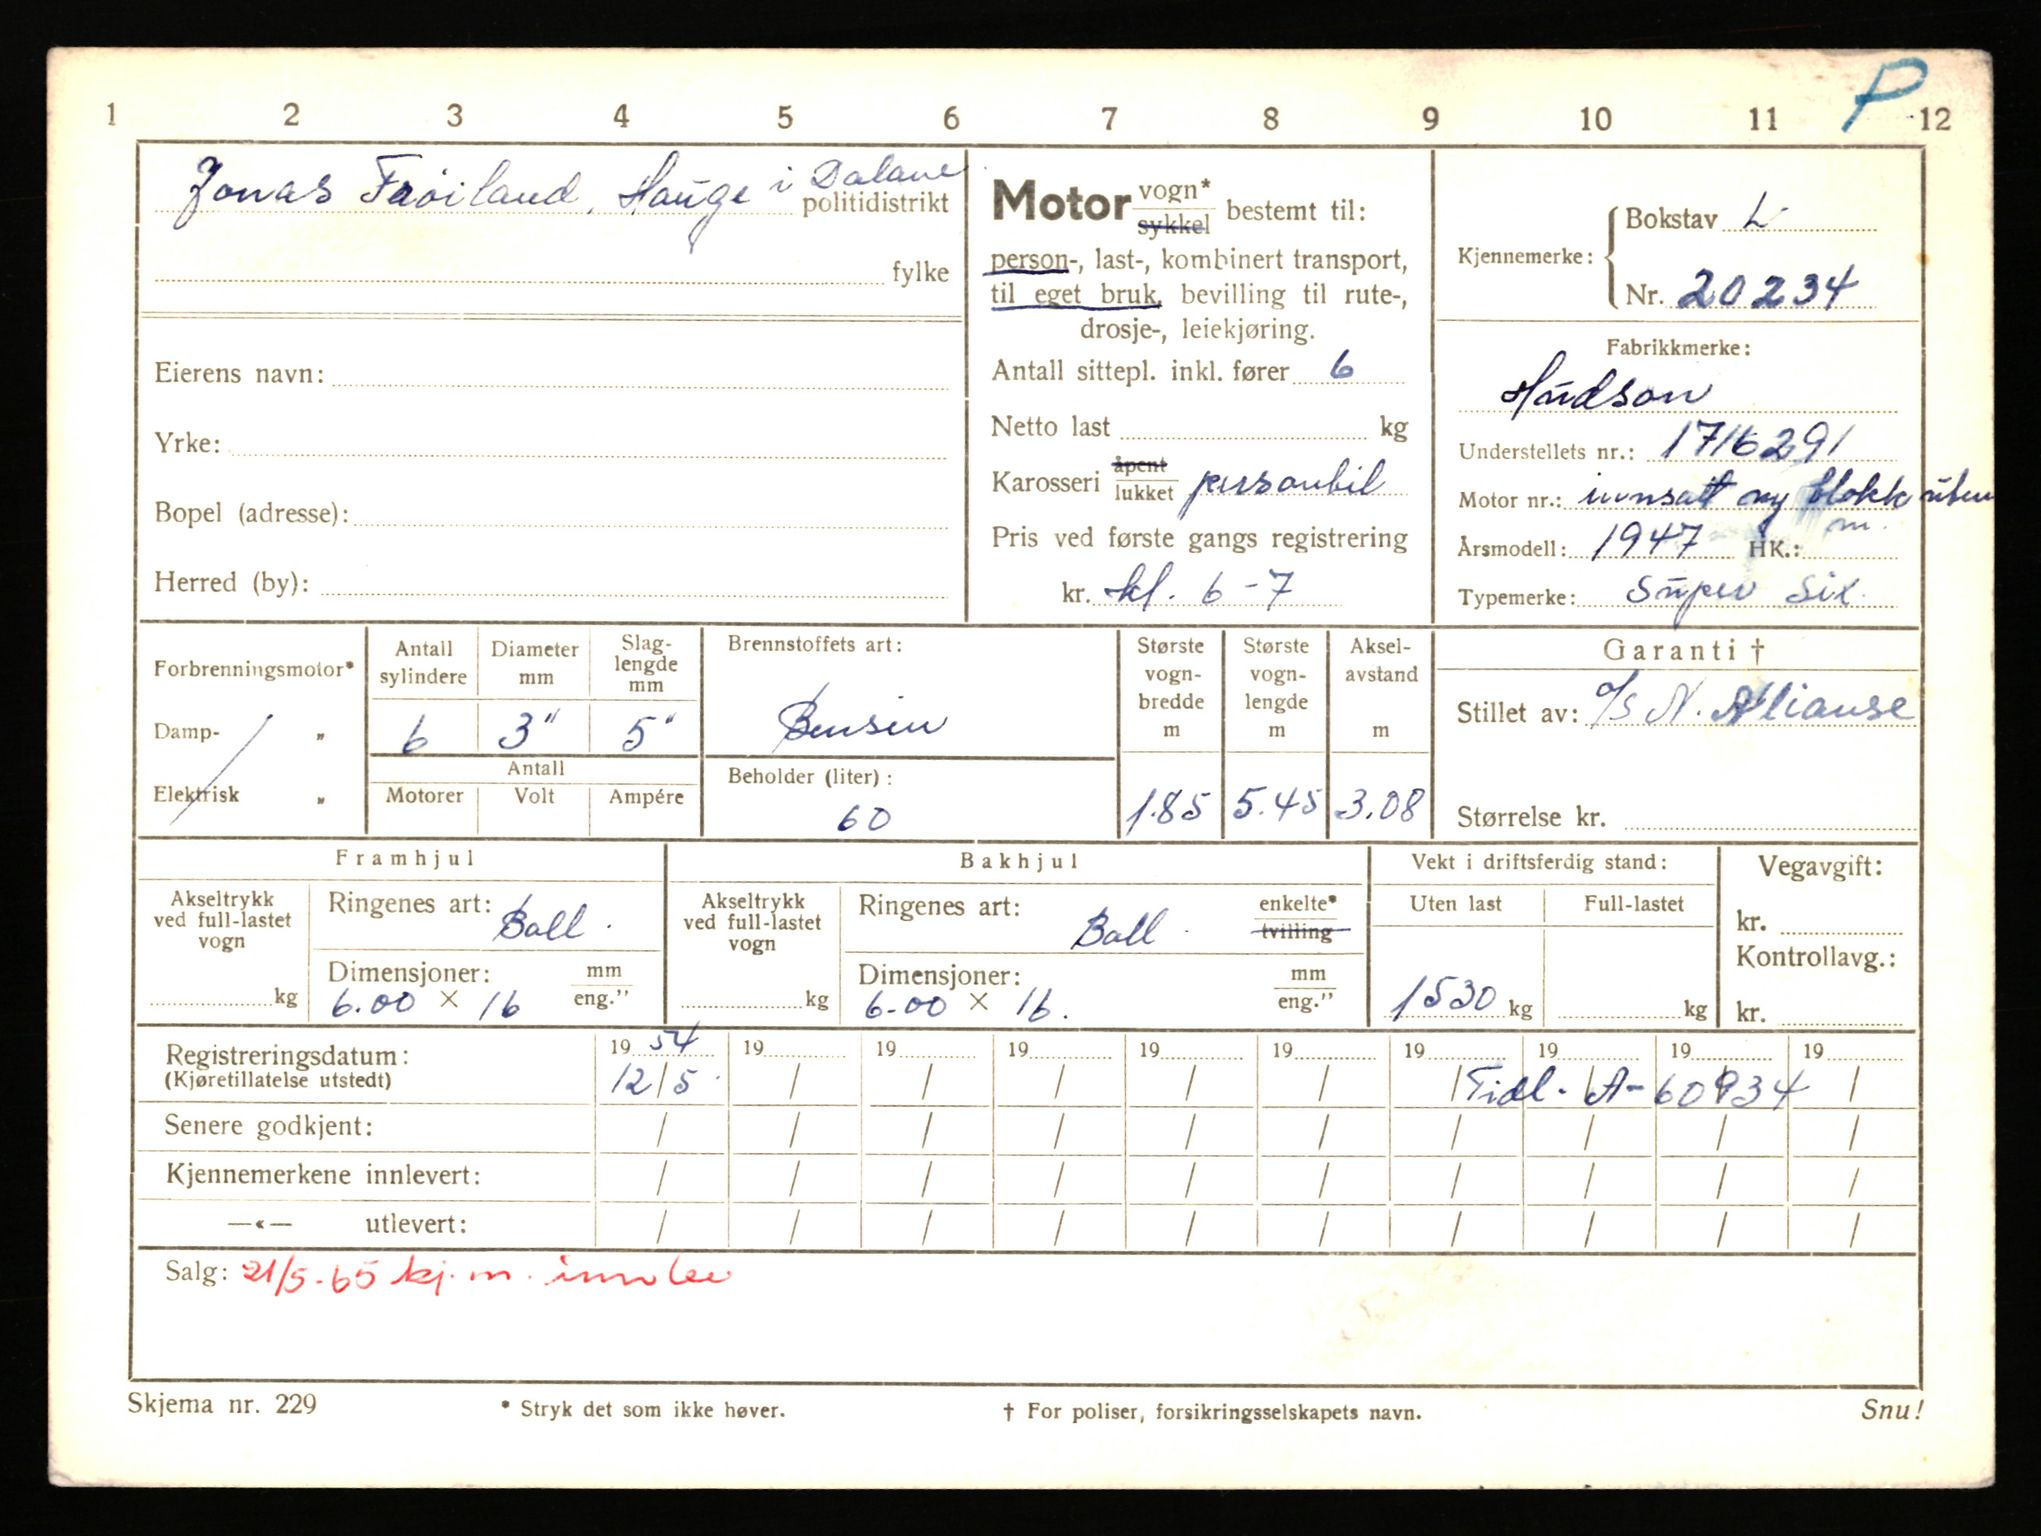 P
1 2 3 4 5 6 7 8 9 10 11 12
Jonas Frøiland, Hauge i Dalane politidistrikt
fylke
Eierens navn:
Yrke:
Bopel (adresse):
Herred (by):
Motor vogn* sykkel bestemt til:
person-, last-, kombinert transport,
til eget bruk, bevilling til rute-,
drosje-, leiekjøring.
Antall sittepl. inkl. fører 6
Netto last kg
Karosseri åpent lukket personbil
Pris ved første gangs registrering
kr. kl. 6-7
Kjennemerke: Bokstav L
Nr. 20234
Fabrikkmerke:
Hudson
Understellets nr.: 1716291
Motor nr.: innsatt ny blokk uten
m.
Årsmodell: 1947 HK.:
Typemerke: Super Six
Forbrenningsmotor*
Damp- „
Elektrisk „
Antall sylindere 6
Diameter mm 3"
Slag-lengde mm 5"
Antall
Motorer Volt Ampére
Brennstoffets art:
Bensin
Beholder (liter):
60
Største vogn-bredde m 1.85
Største vogn-lengde m 5.45
Aksel-avstand m 3.08
Garanti †
Stillet av: a/s N. Alianse
Størrelse kr.
Framhjul
Akseltrykk ved full-lastet vogn kg
Ringenes art: Ball.
Dimensjoner: mm eng."
6.00 × 16
Bakhjul
Akseltrykk ved full-lastet vogn kg
Ringenes art: Ball. enkelte* tvilling
Dimensjoner: mm eng."
6-00 × 16.
Vekt i driftsferdig stand:
Uten last Full-lastet
1530 kg kg
Vegavgift:
kr.
Kontrollavg.:
kr.
Registreringsdatum: 19 54 19 19 19 19 19 19 19 19 19
(Kjøretillatelse utstedt) 12/5. / / / / / / / / /
Tidl. A-60934
Senere godkjent: / / / / / / / / / /
Kjennemerkene innlevert: / / / / / / / / / /
—«— utlevert: / / / / / / / / / /
Salg: 21/5-65 kj.m. innlev
Skjema nr. 229 * Stryk det som ikke høver. † For poliser, forsikringsselskapets navn. Snu!